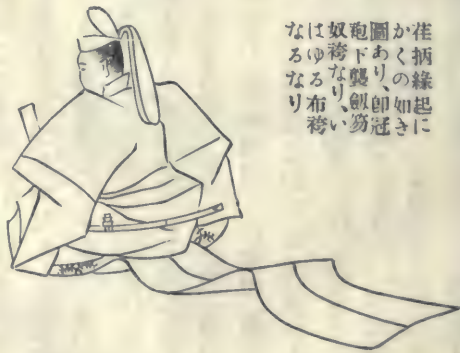 荏柄緣起に
かくの如き
圖あり、卽冠
袍下襲劔笏
奴袴なり、い
はゆる布袴
なるなり